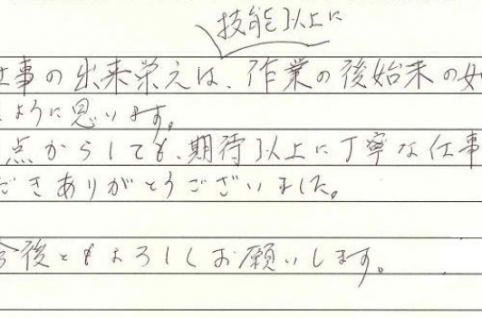 技能以上に
仕事の出来栄えは、作業の後始末の
ように思います。
点からしても、期待以上に丁寧な仕事
だきありがとうございました。
今後ともよろしくお願いします。